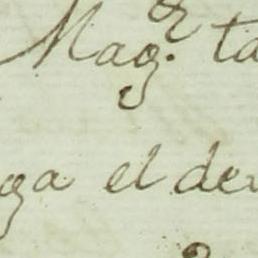 Mag. ta
ga el de